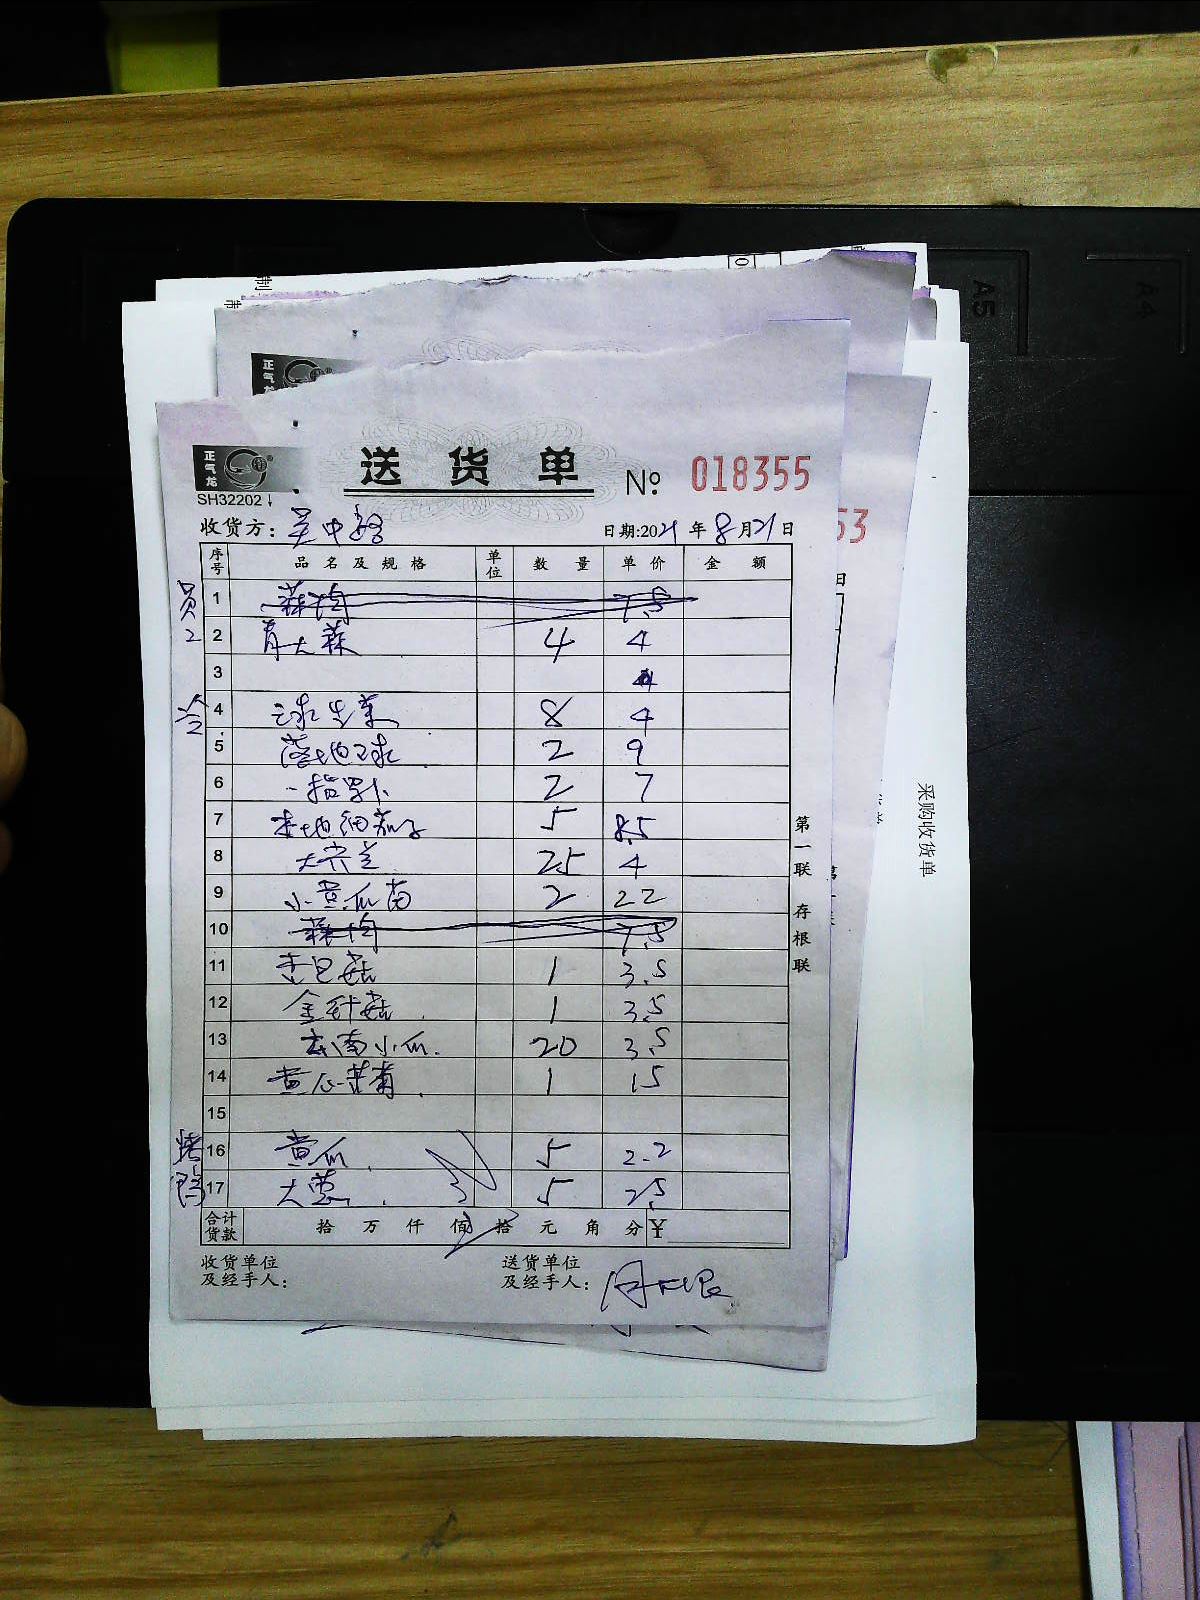 A5
A4
正气龙
正气龙
SH32202
送货单
No 018355
53
收货方: 吴中路
日期:2021年8月21日
日
序号 品名及规格 单位 数量 单价 金额
员工
1 蒜肉 7.5
2 青大蒜 4 4
3
冷
4 球生菜 8 4
5 落地球 2 9
6 一指罗卜 2 7
7 本地细茄子 5 8.5
8 大 25 4
9 小黄瓜苗 2 22
10 蒜肉 7.5
11 杏包菇 1 3.5
12 金针菇 1 3.5
13 云南小瓜 20 3.5
14 黄心 1 15
15
烤鸭
16 黄瓜 5 2.2
17 大葱 5 2.5
合计货款 拾万仟佰拾元角分 ¥
收货单位及经手人:
送货单位及经手人:
第一联 存根联
采购收货单